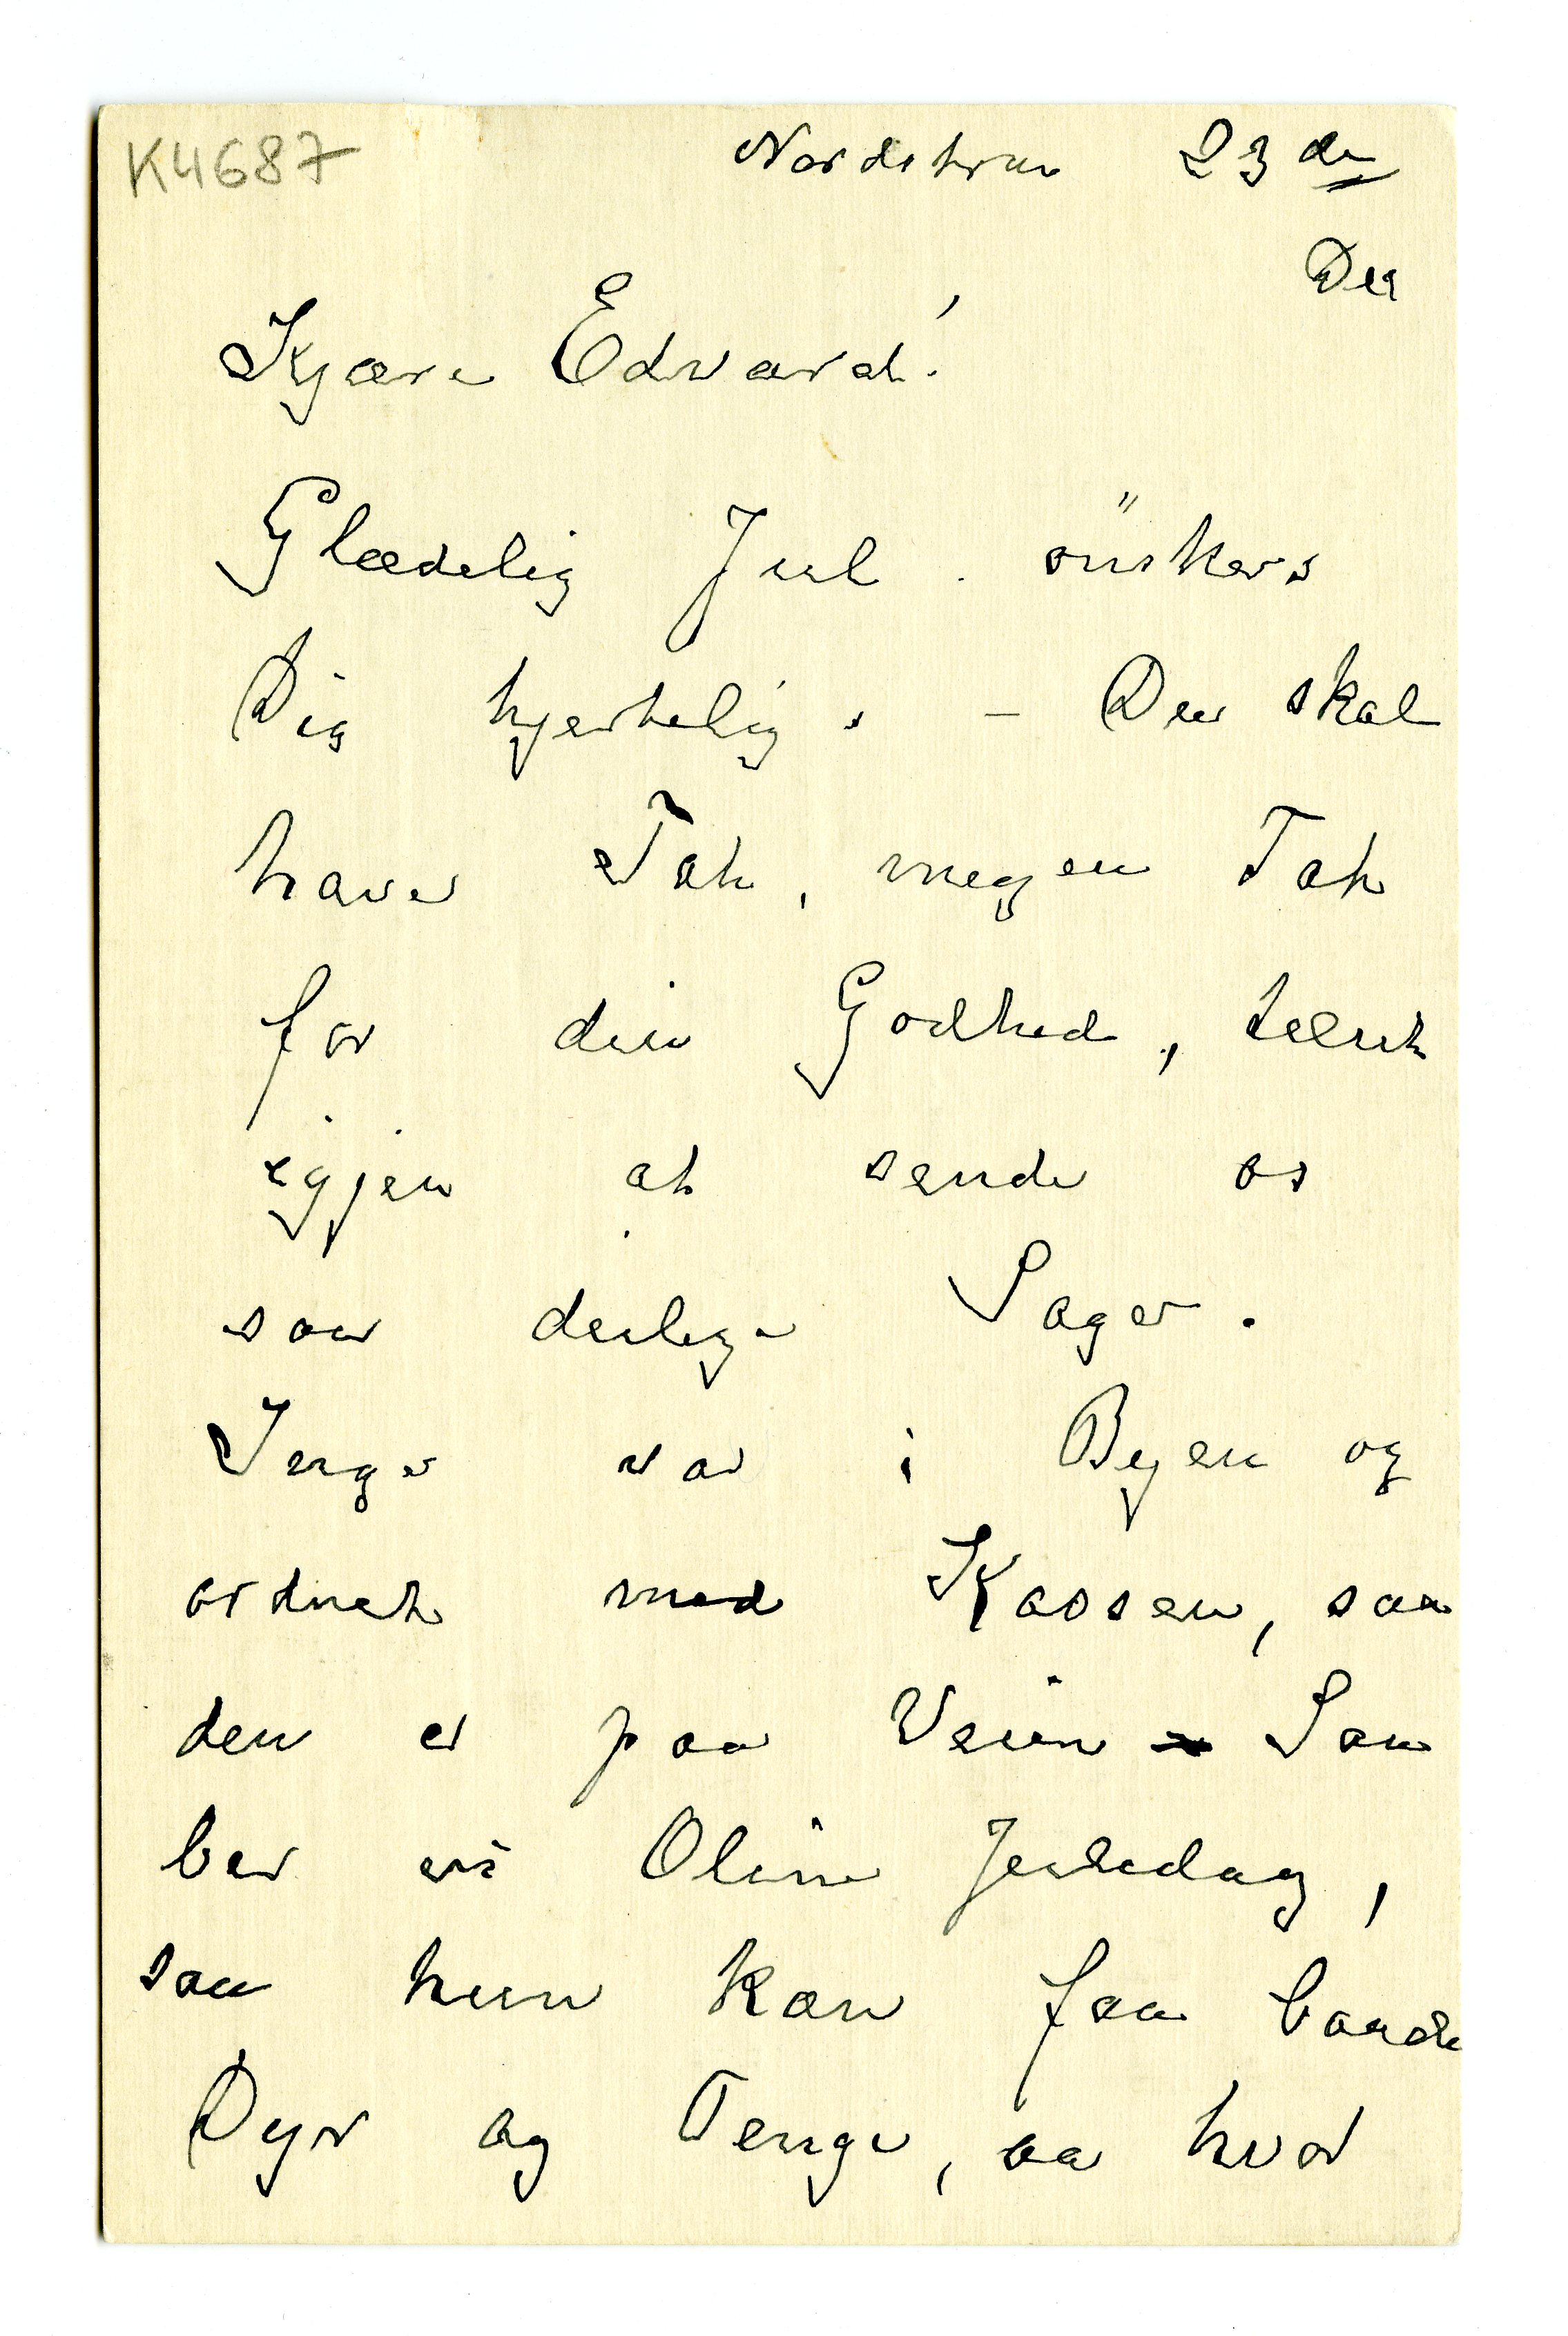 K4687
Nordstran 23 de
Des
Kjære Edvard!
Glædelig Jul önskes
Dig hjertelig. – Du skal
have Tak, megen Tak
for din Godhed, tænk
igjen at sende os
saa deilige Sager.
Inger var i Byen og
ordnet med Kassen, saa
den er paa Veien Saa
ber vi Oline Juledag,
saa hun kan faa baade
Dyr og Penge, aa hvor